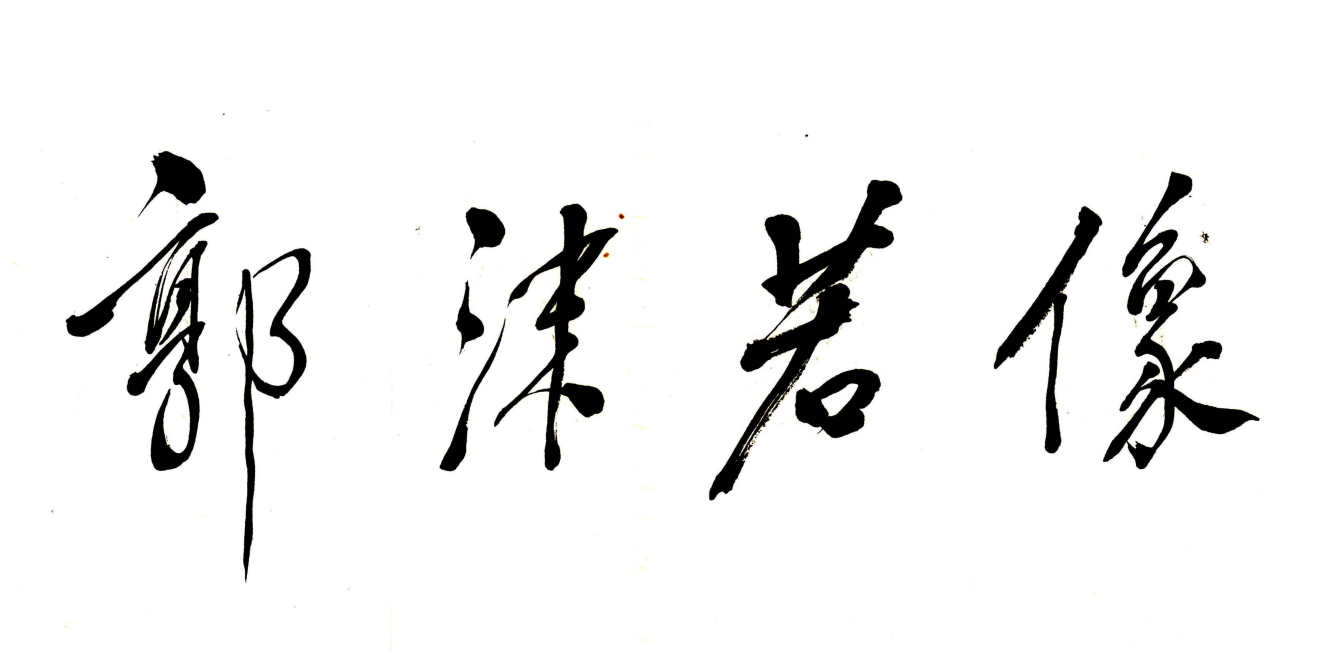 郭沫若像